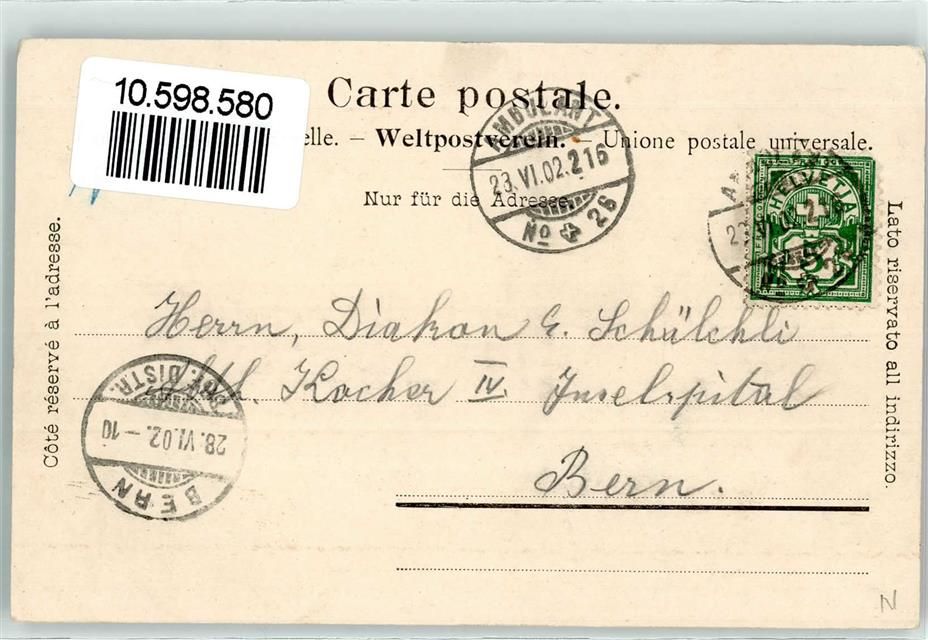 10.598.580
Carte postale.
elle. – Weltpostverein. – Unione postale universale.
Nur für die Adresse.
AMBULANT
23.VI.02.216
No 26
HELVETIA
5
Côté réservé à l'adresse.
Lato riservato all indirizzo.
Herrn, Diakon E. Schülchli
Abth. Kocher IV. Inselspital
Bern.
DISTR.
28.VI.02.–10
BERN
N